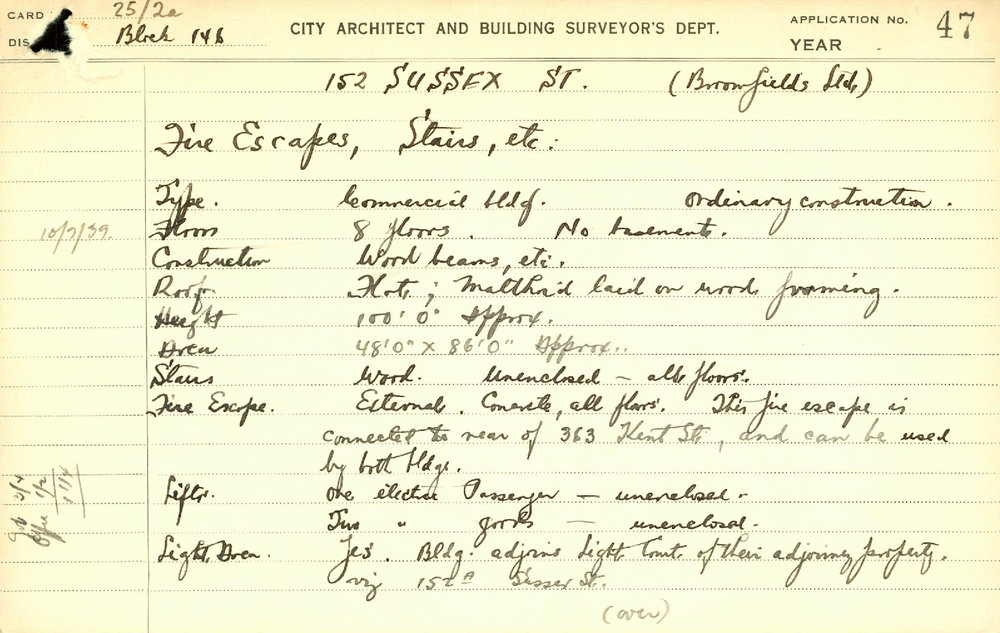 CARD 25/2a
DIS Block 148 CITY ARCHITECT AND BUILDING SURVEYOR'S DEPT. APPLICATION No. 47
YEAR
152 SUSSEX ST. (Broomfields Ltd)
Fire Escapes, Stairs, etc:
Type. Commercial bldg. Ordinary construction.
10/7/39. Floors 8 floors. No basements.
Construction Wood beams, etc.
Roof. Flat; Malthoid laid on wood framing.
Height 100'0" Approx.
Area 48'0" x 86'0" Approx.
Stairs Wood. Unenclosed — all floors.
Fire Escape. External. Concrete, all floors. This fire escape is
connected to rear of 363 Kent St, and can be used
by both bldgs.
Lifts. One electric Passenger — unenclosed.
Two " goods — unenclosed.
Light Area. Yes. Bldg. adjoins Light Court of their adjoining property.
viz 152A Sussex St.
(over)